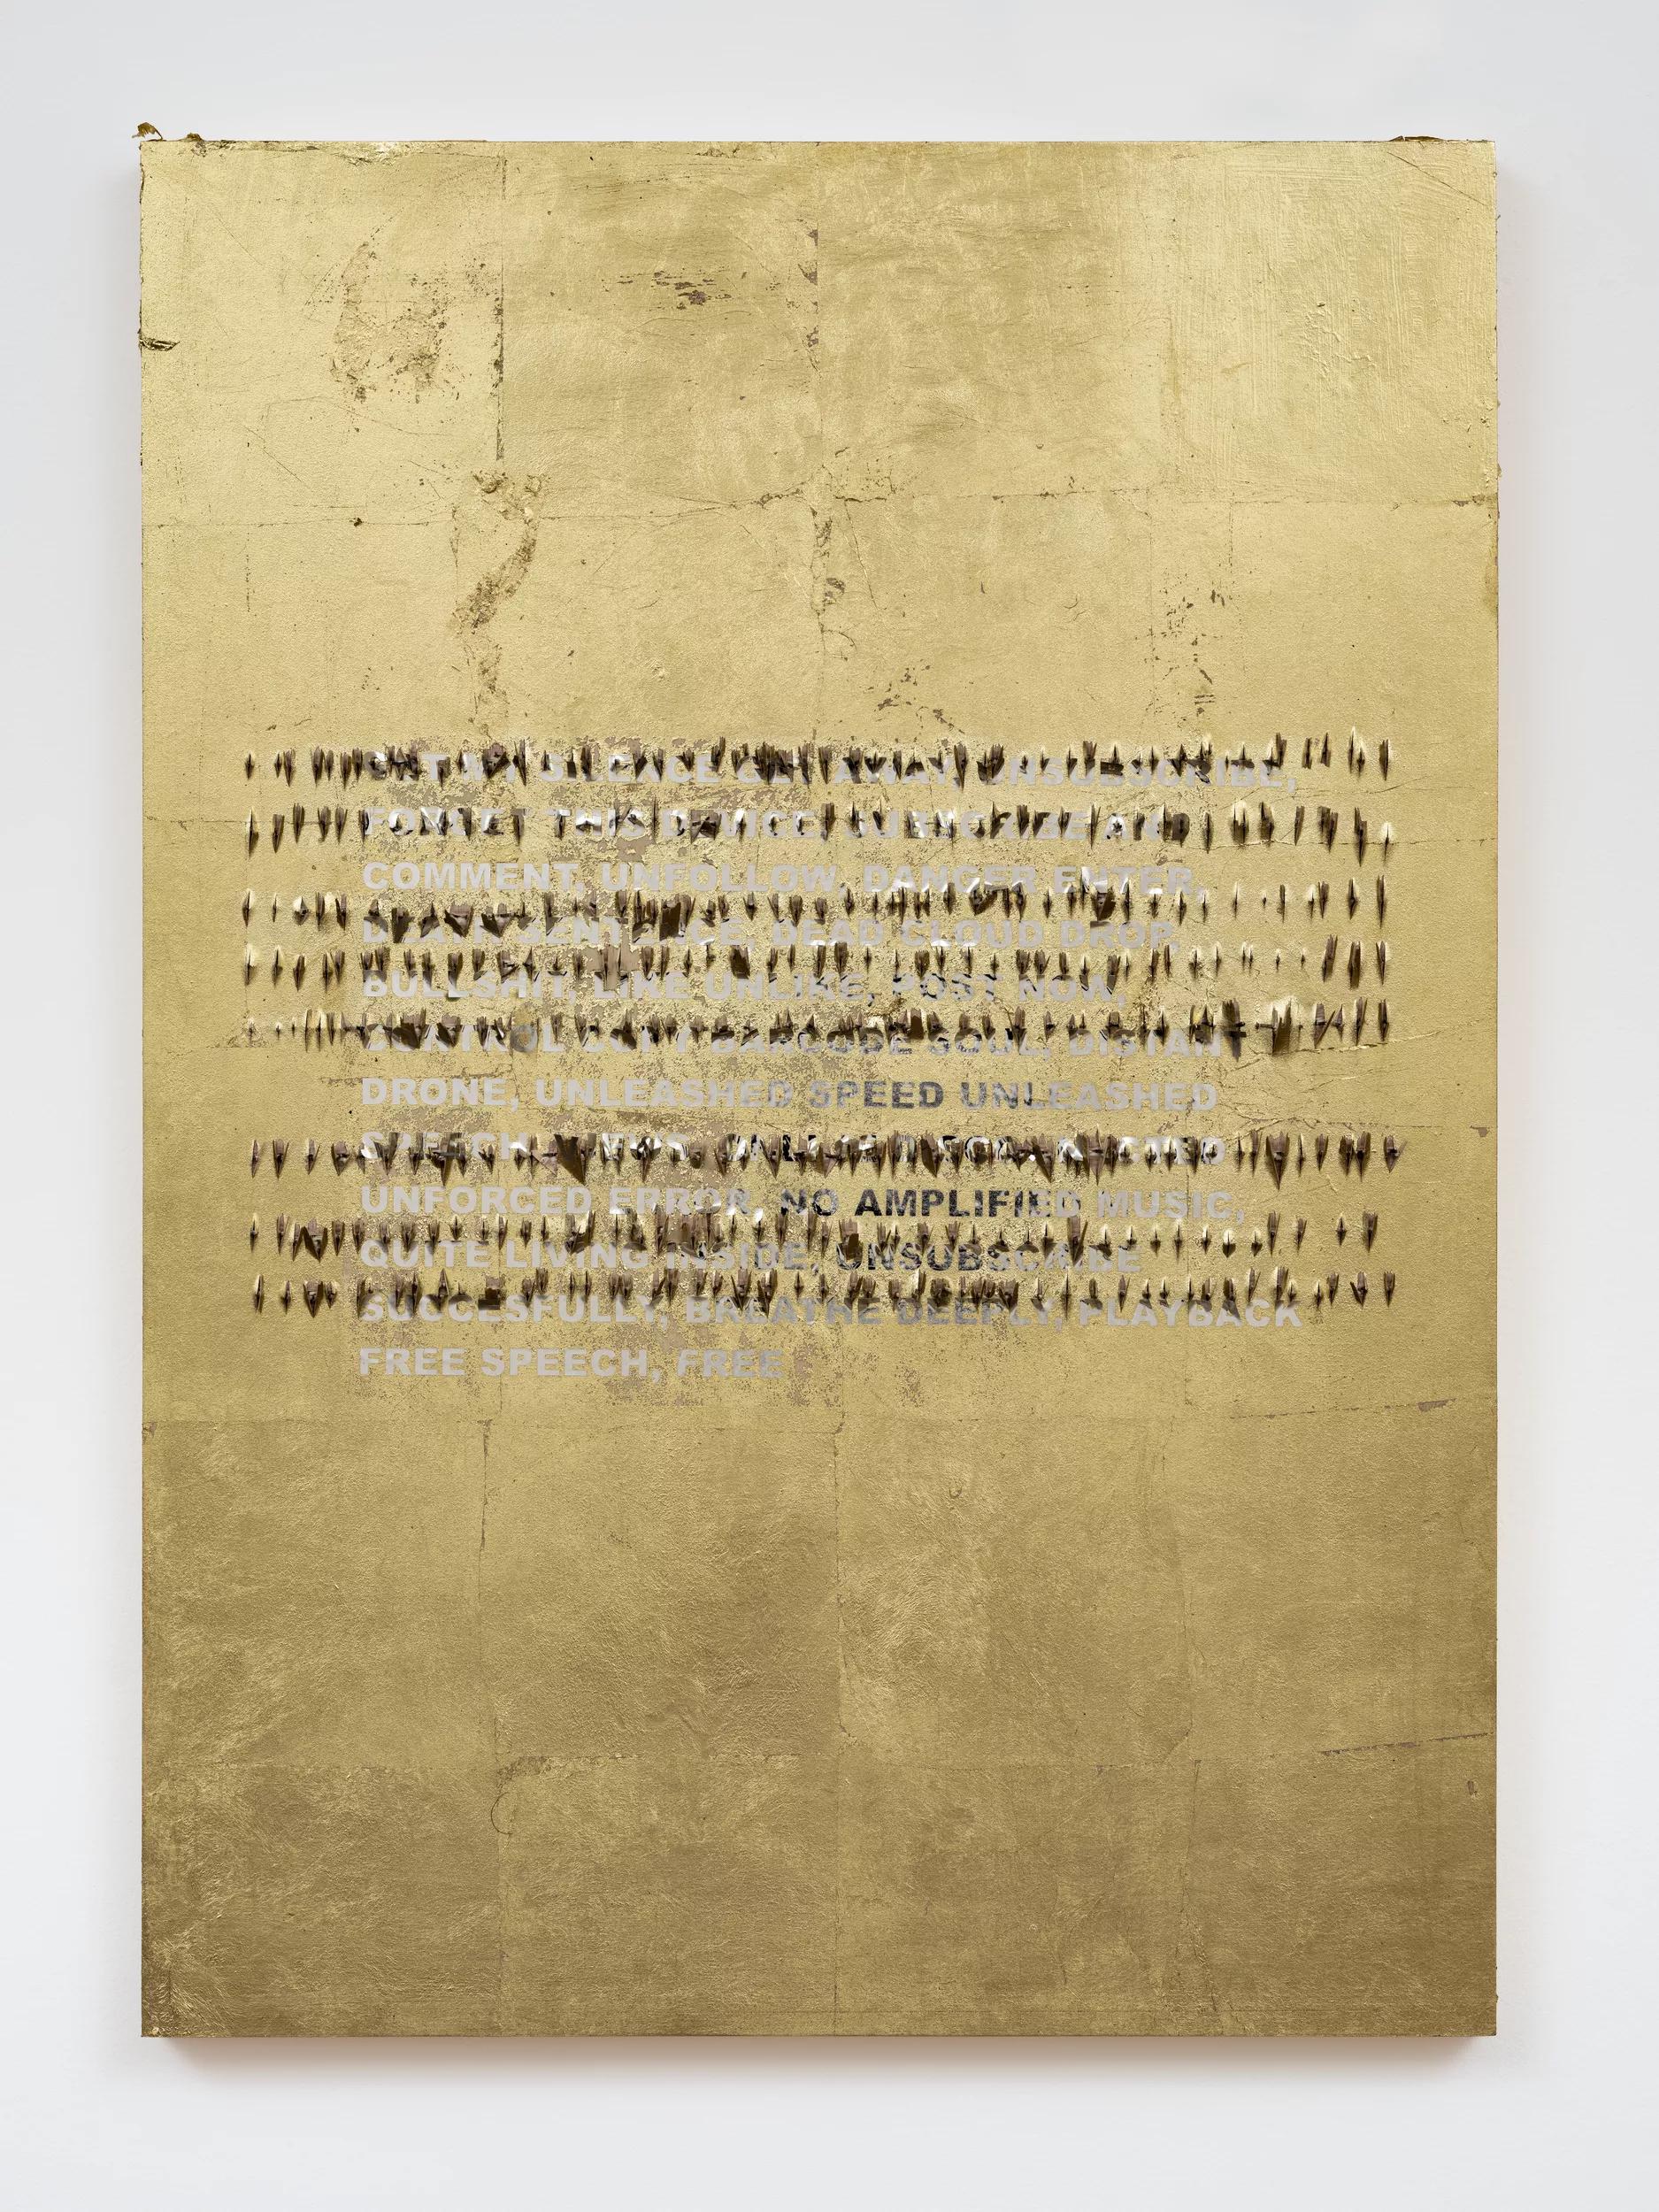 UNSUBSCRIBE,
FORGET THIS DEVICE, SUBSCRIBE
COMMENT, UNFOLLOW, DANGER ENTER,
DEATH SENTENCE, DEAD CLOUD DROP,
BULLSHIT, LIKE UNLIKE, POST NOW,
CONTROL COPY BARCODE SOUL,
DRONE, UNLEASHED SPEED UNLEASHED
SPEECH
UNFORCED ERROR, NO AMPLIFIED MUSIC,
QUITE LIVING INSIDE, UNSUBSCRIBE
SUCCESFULLY, BREATHE DEEPLY, PLAYBACK
FREE SPEECH, FREE